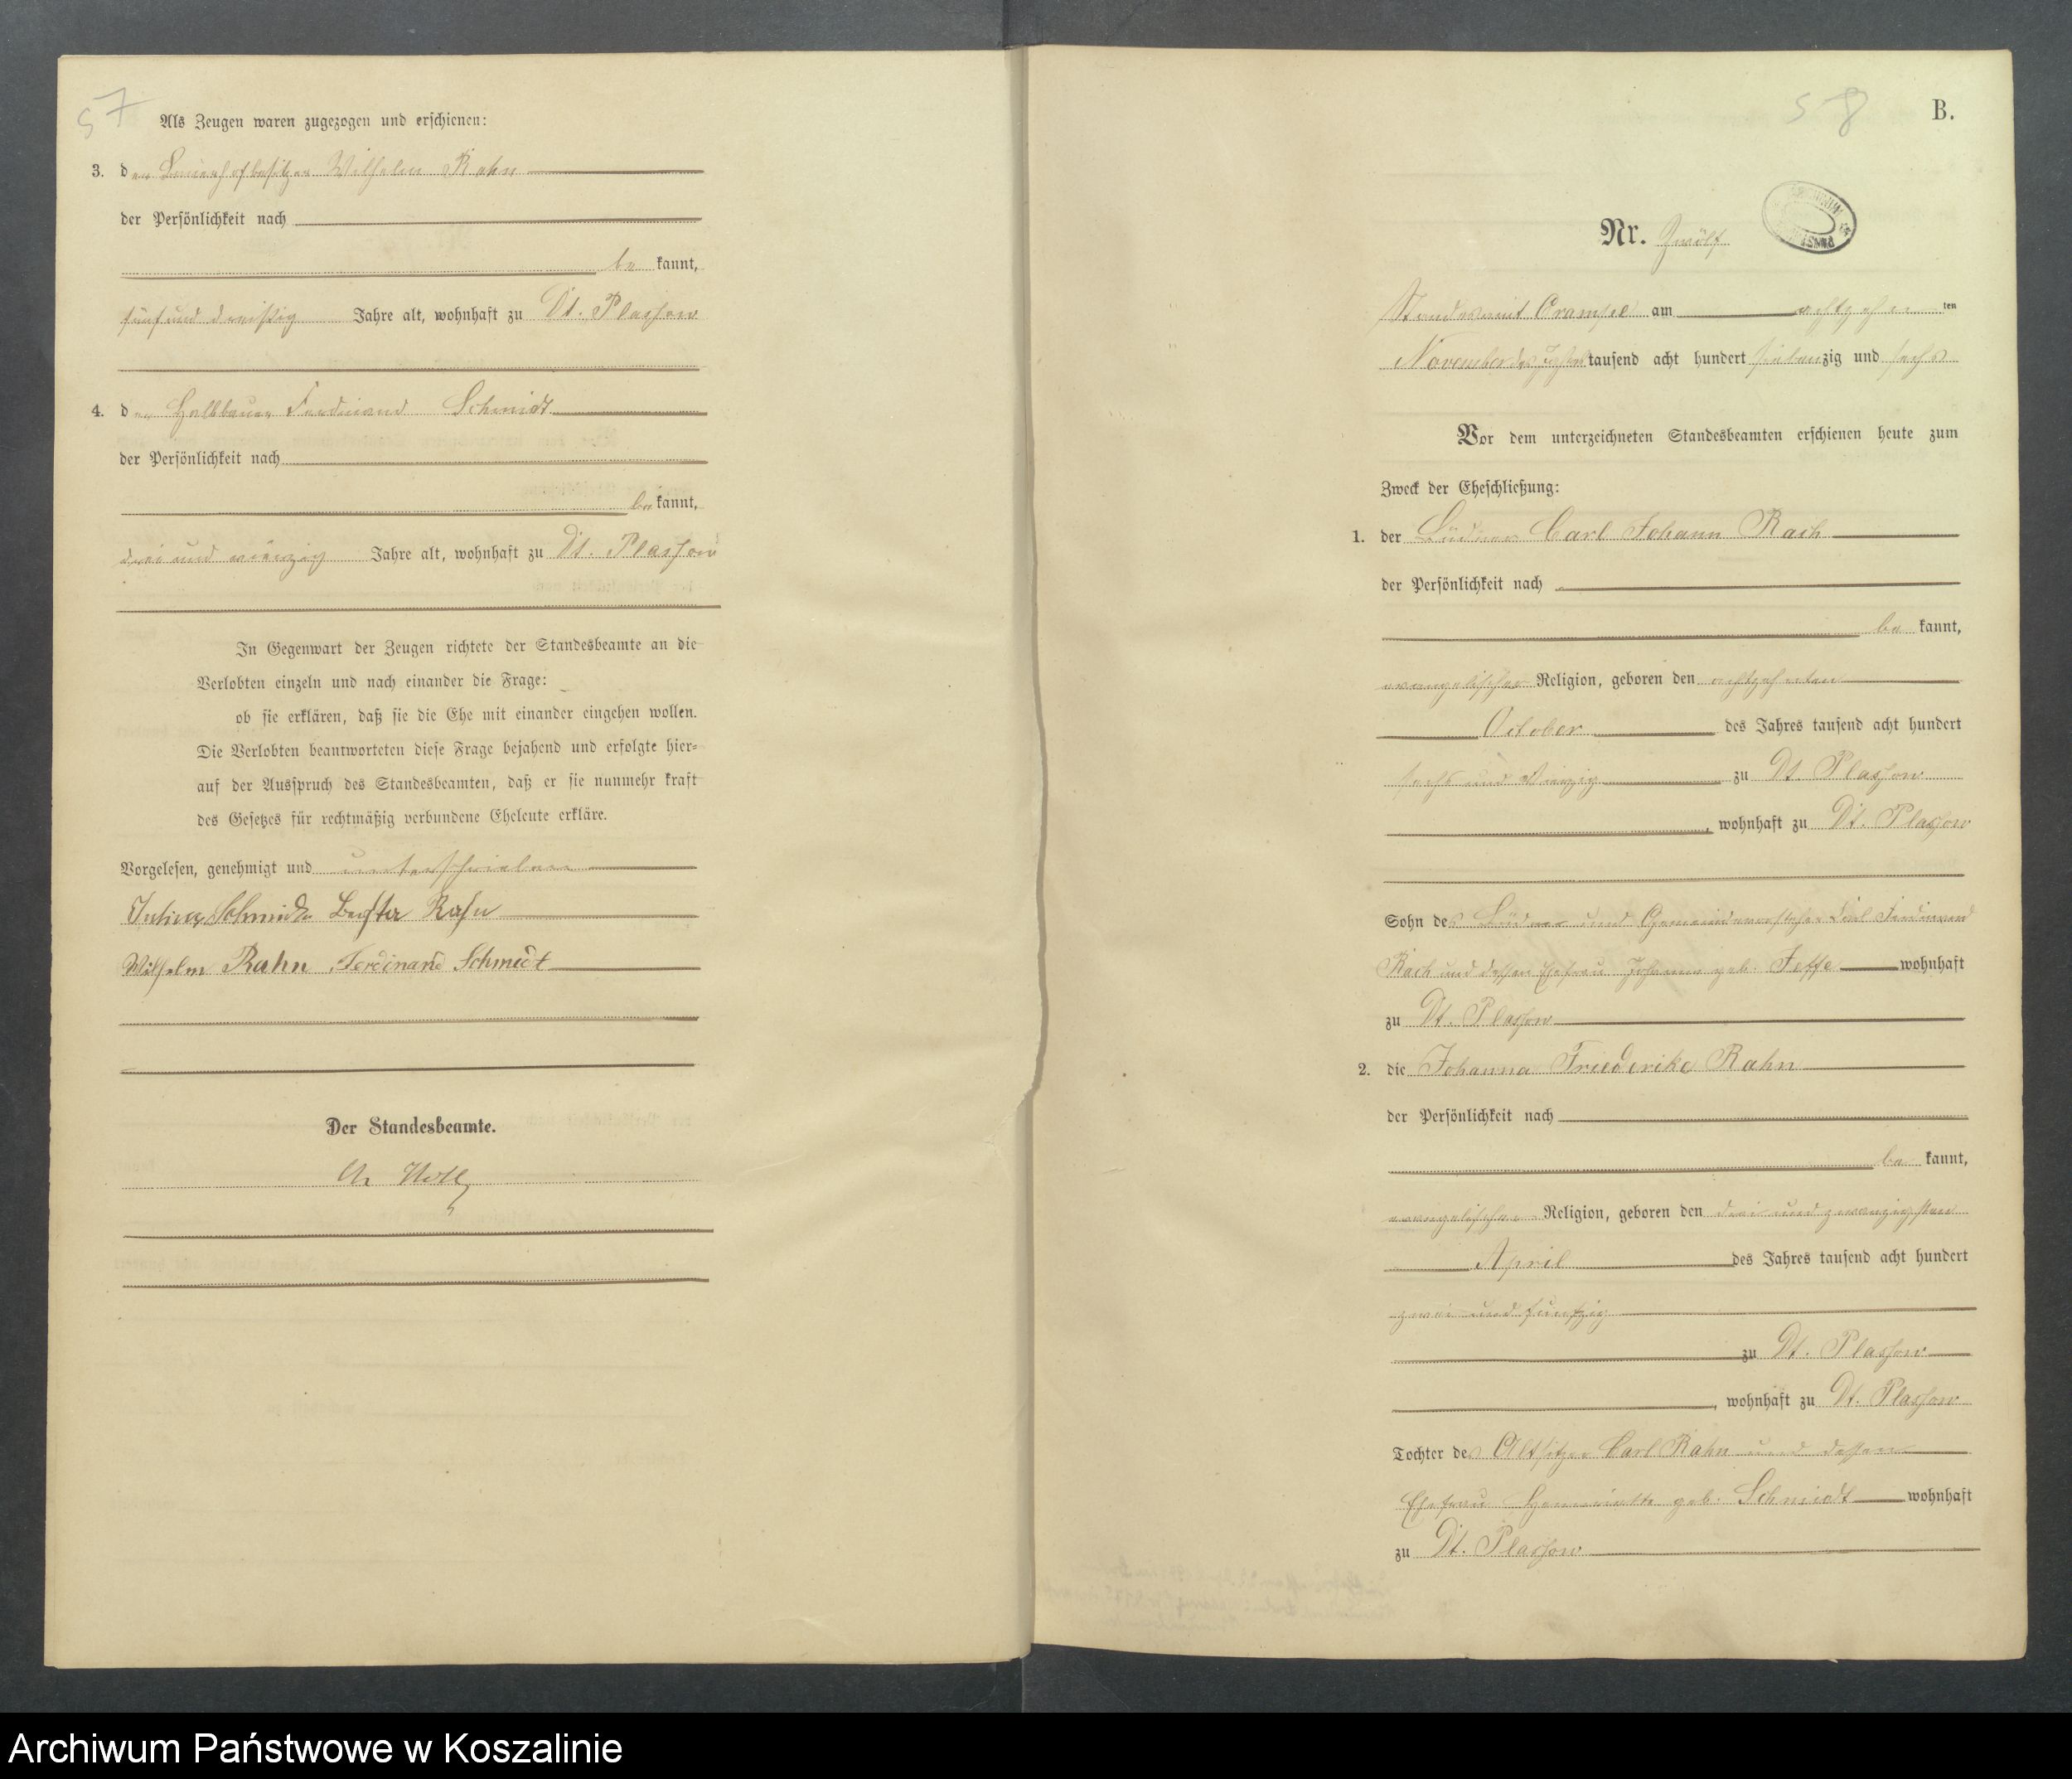 57
Als Zeugen waren zugezogen und erschienen:
3. der Bauerhofbesitzer Wilhelm Rahn
der Persönlichkeit nach
be kannt,
fünf und dreißig Jahre alt, wohnhaft zu Dt. Plassow
4. der Halbbauer Ferdinand Schmidt
der Persönlichkeit nach
be kannt,
drei und vierzig Jahre alt, wohnhaft zu Dt. Plassow
In Gegenwart der Zeugen richtete der Standesbeamte an die
Verlobten einzeln und nach einander die Frage:
ob sie erklären, daß sie die Ehe mit einander eingehen wollen.
Die Verlobten beantworteten diese Frage bejahend und erfolgte hier-
auf der Ausspruch des Standesbeamten, daß er sie nunmehr kraft
des Gesetzes für rechtmäßig verbundene Eheleute erkläre.
Vorgelesen, genehmigt und unterschrieben
Schmidt Rahn
Wilhelm Rahn Ferdinand Schmidt
Der Standesbeamte.
58
B.
Nr. Zwölf
Standesamt Crampe am achtzehn ten
November des Jahres tausend acht hundert siebenzig und sechs
Vor dem unterzeichneten Standesbeamten erschienen heute zum
Zweck der Eheschließung:
1. der Büdner Carl Johann Rach
der Persönlichkeit nach
be kannt,
evangelischer Religion, geboren den achtzehnten
October des Jahres tausend acht hundert
sechs und vierzig zu Dt. Plassow
, wohnhaft zu Dt. Plassow
Sohn des Büdner und Gemeindevorsteher Carl Ferdinand
Rach und dessen Ehefrau Johanna geb. wohnhaft
zu Dt. Plassow
2. die Johanna Friederike Rahn
der Persönlichkeit nach
be kannt,
evangelischer Religion, geboren den drei und zwanzigsten
April des Jahres tausend acht hundert
zwei und funfzig
zu Dt. Plassow
, wohnhaft zu Dt. Plassow
Tochter des Altsitzer Carl Rahn und dessen
Ehefrau Henriette geb. Schmidt wohnhaft
zu Dt. Plassow
Archiwum Państwowe w Koszalinie